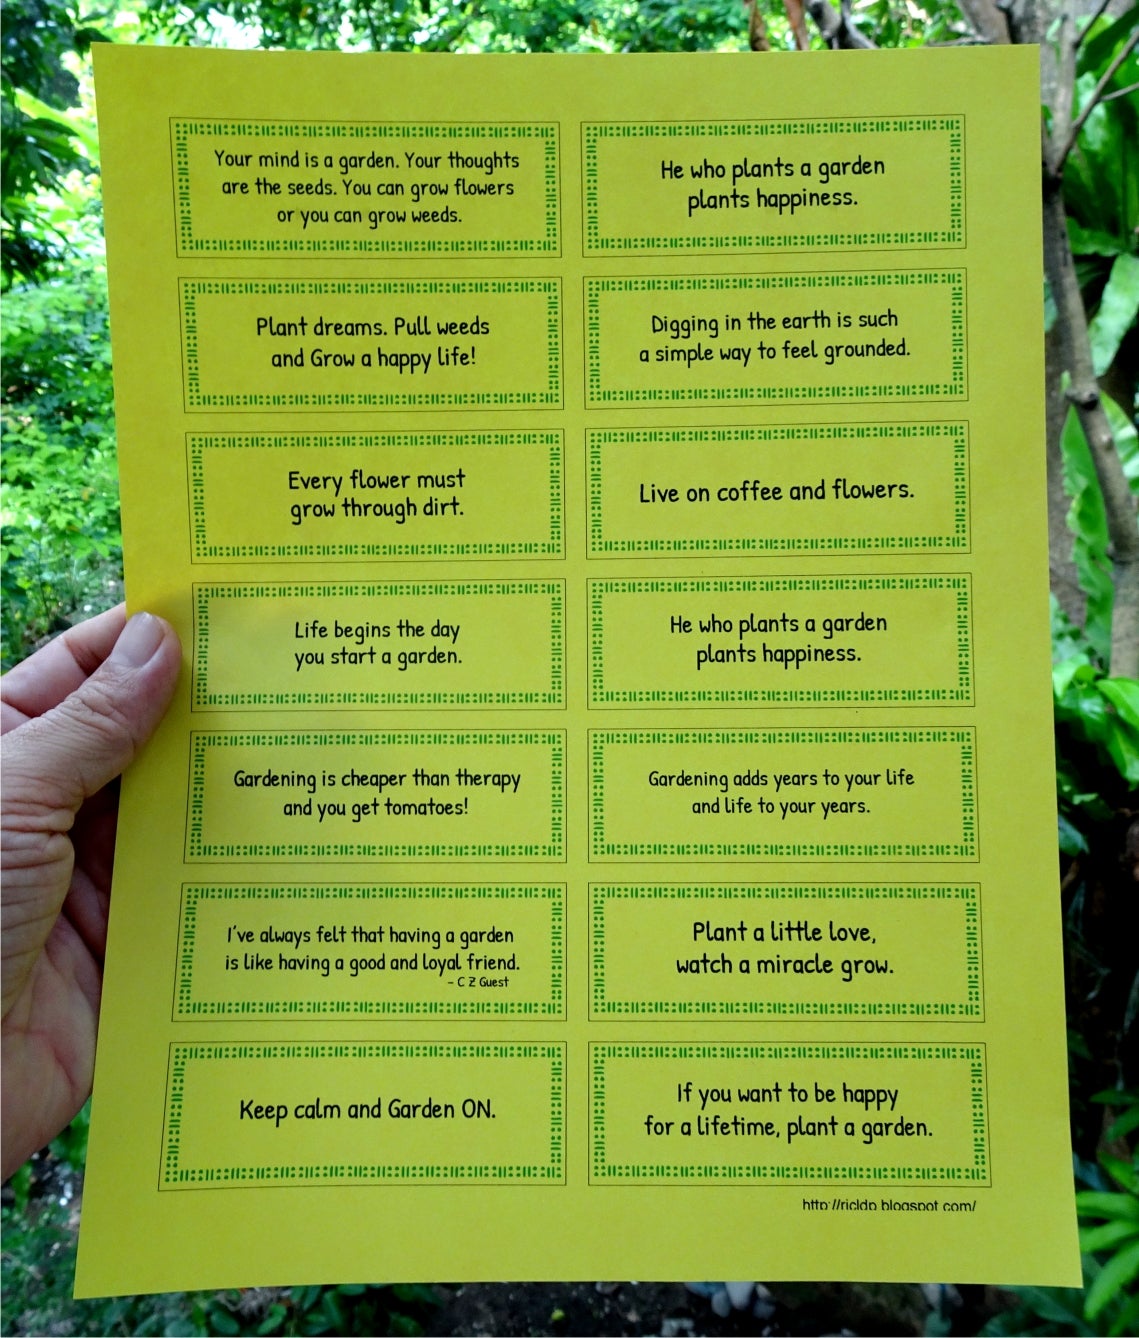 Your mind is a garden. Your thoughts
are the seeds. You can grow flowers
or you can grow weeds.
He who plants a garden
plants happiness.
Plant dreams. Pull weeds
and Grow a happy life!
Digging in the earth is such
a simple way to feel grounded.
Every flower must
grow through dirt.
Live on coffee and flowers.
Life begins the day
you start a garden.
He who plants a garden
plants happiness.
Gardening is cheaper than therapy
and you get tomatoes!
Gardening adds years to your life
and life to your years.
I've always felt that having a garden
is like having a good and loyal friend.
- C Z Guest
Plant a little love,
watch a miracle grow.
Keep calm and Garden ON.
If you want to be happy
for a lifetime, plant a garden.
http://ricldp.blogspot.com/